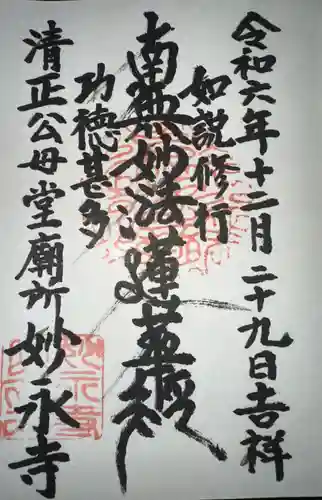 令和六年十二月二十九日吉祥
如説修行
南無妙法蓮華経
功徳甚多
清正公母堂廟所妙永寺